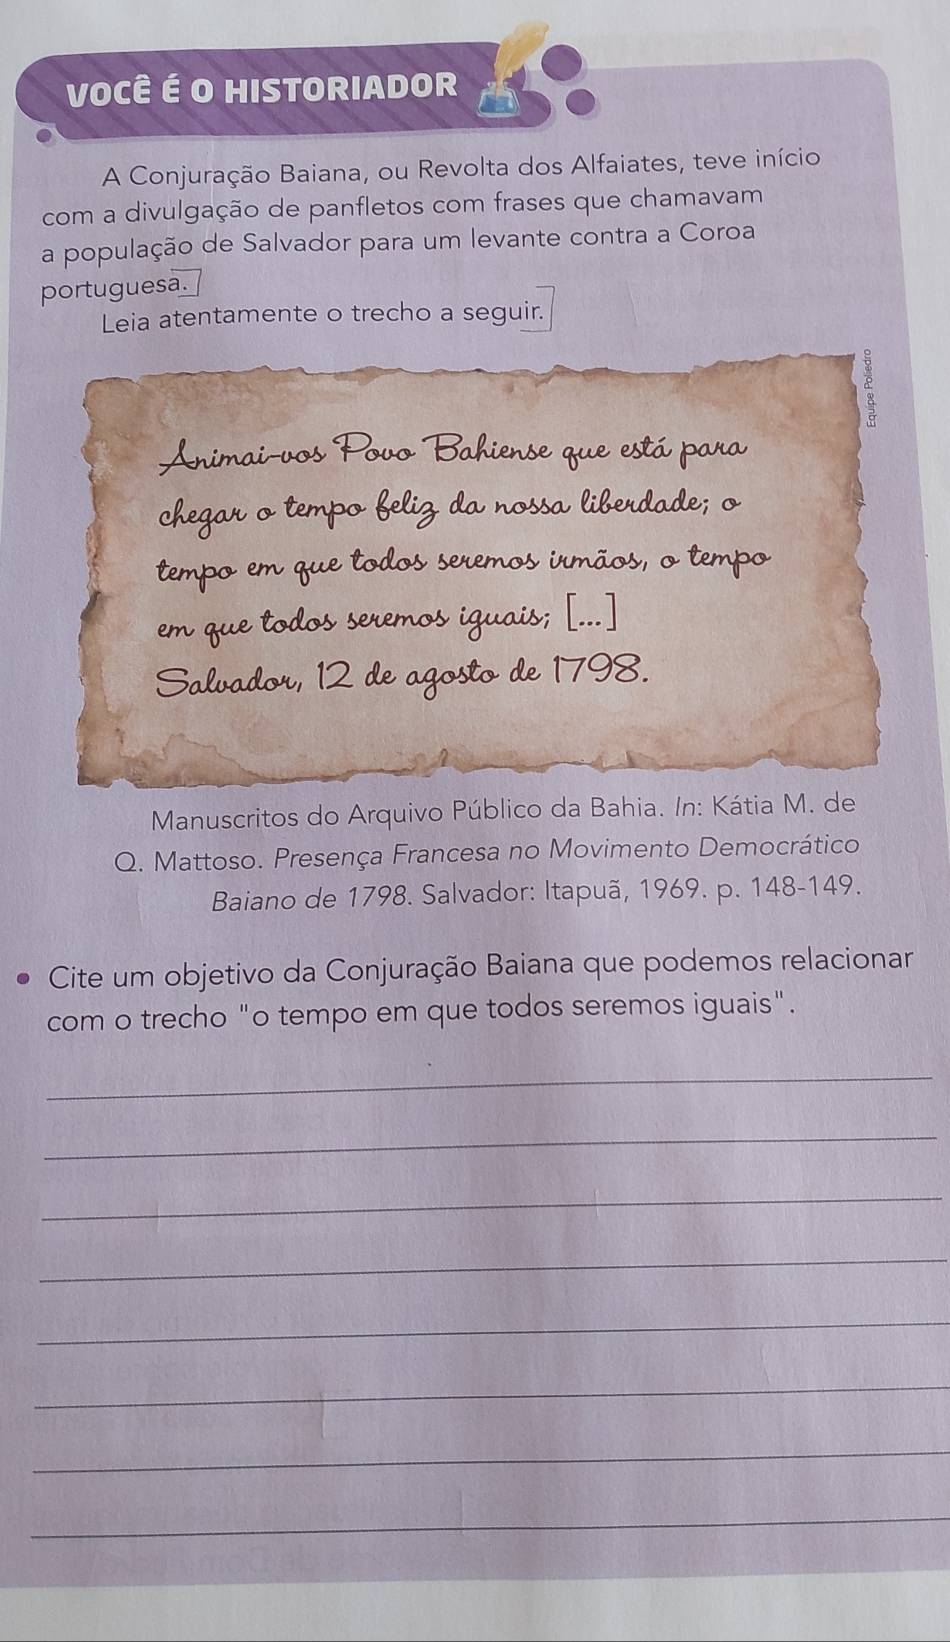 VOCÊ É O HISTORIADOR
A Conjuração Baiana, ou Revolta dos Alfaiates, teve início
com a divulgação de panfletos com frases que chamavam
a população de Salvador para um levante contra a Coroa
portuguesa.
Leia atentamente o trecho a seguir.
Equipe Poliedro
Animai-vos Povo Bahiense que está para
chegar o tempo feliz da nossa liberdade; o
tempo em que todos seremos irmãos, o tempo
em que todos seremos iguais; [...]
Salvador, 12 de agosto de 1798.
Manuscritos do Arquivo Público da Bahia. In: Kátia M. de
Q. Mattoso. Presença Francesa no Movimento Democrático
Baiano de 1798. Salvador: Itapuã, 1969. p. 148-149.
• Cite um objetivo da Conjuração Baiana que podemos relacionar
com o trecho "o tempo em que todos seremos iguais".